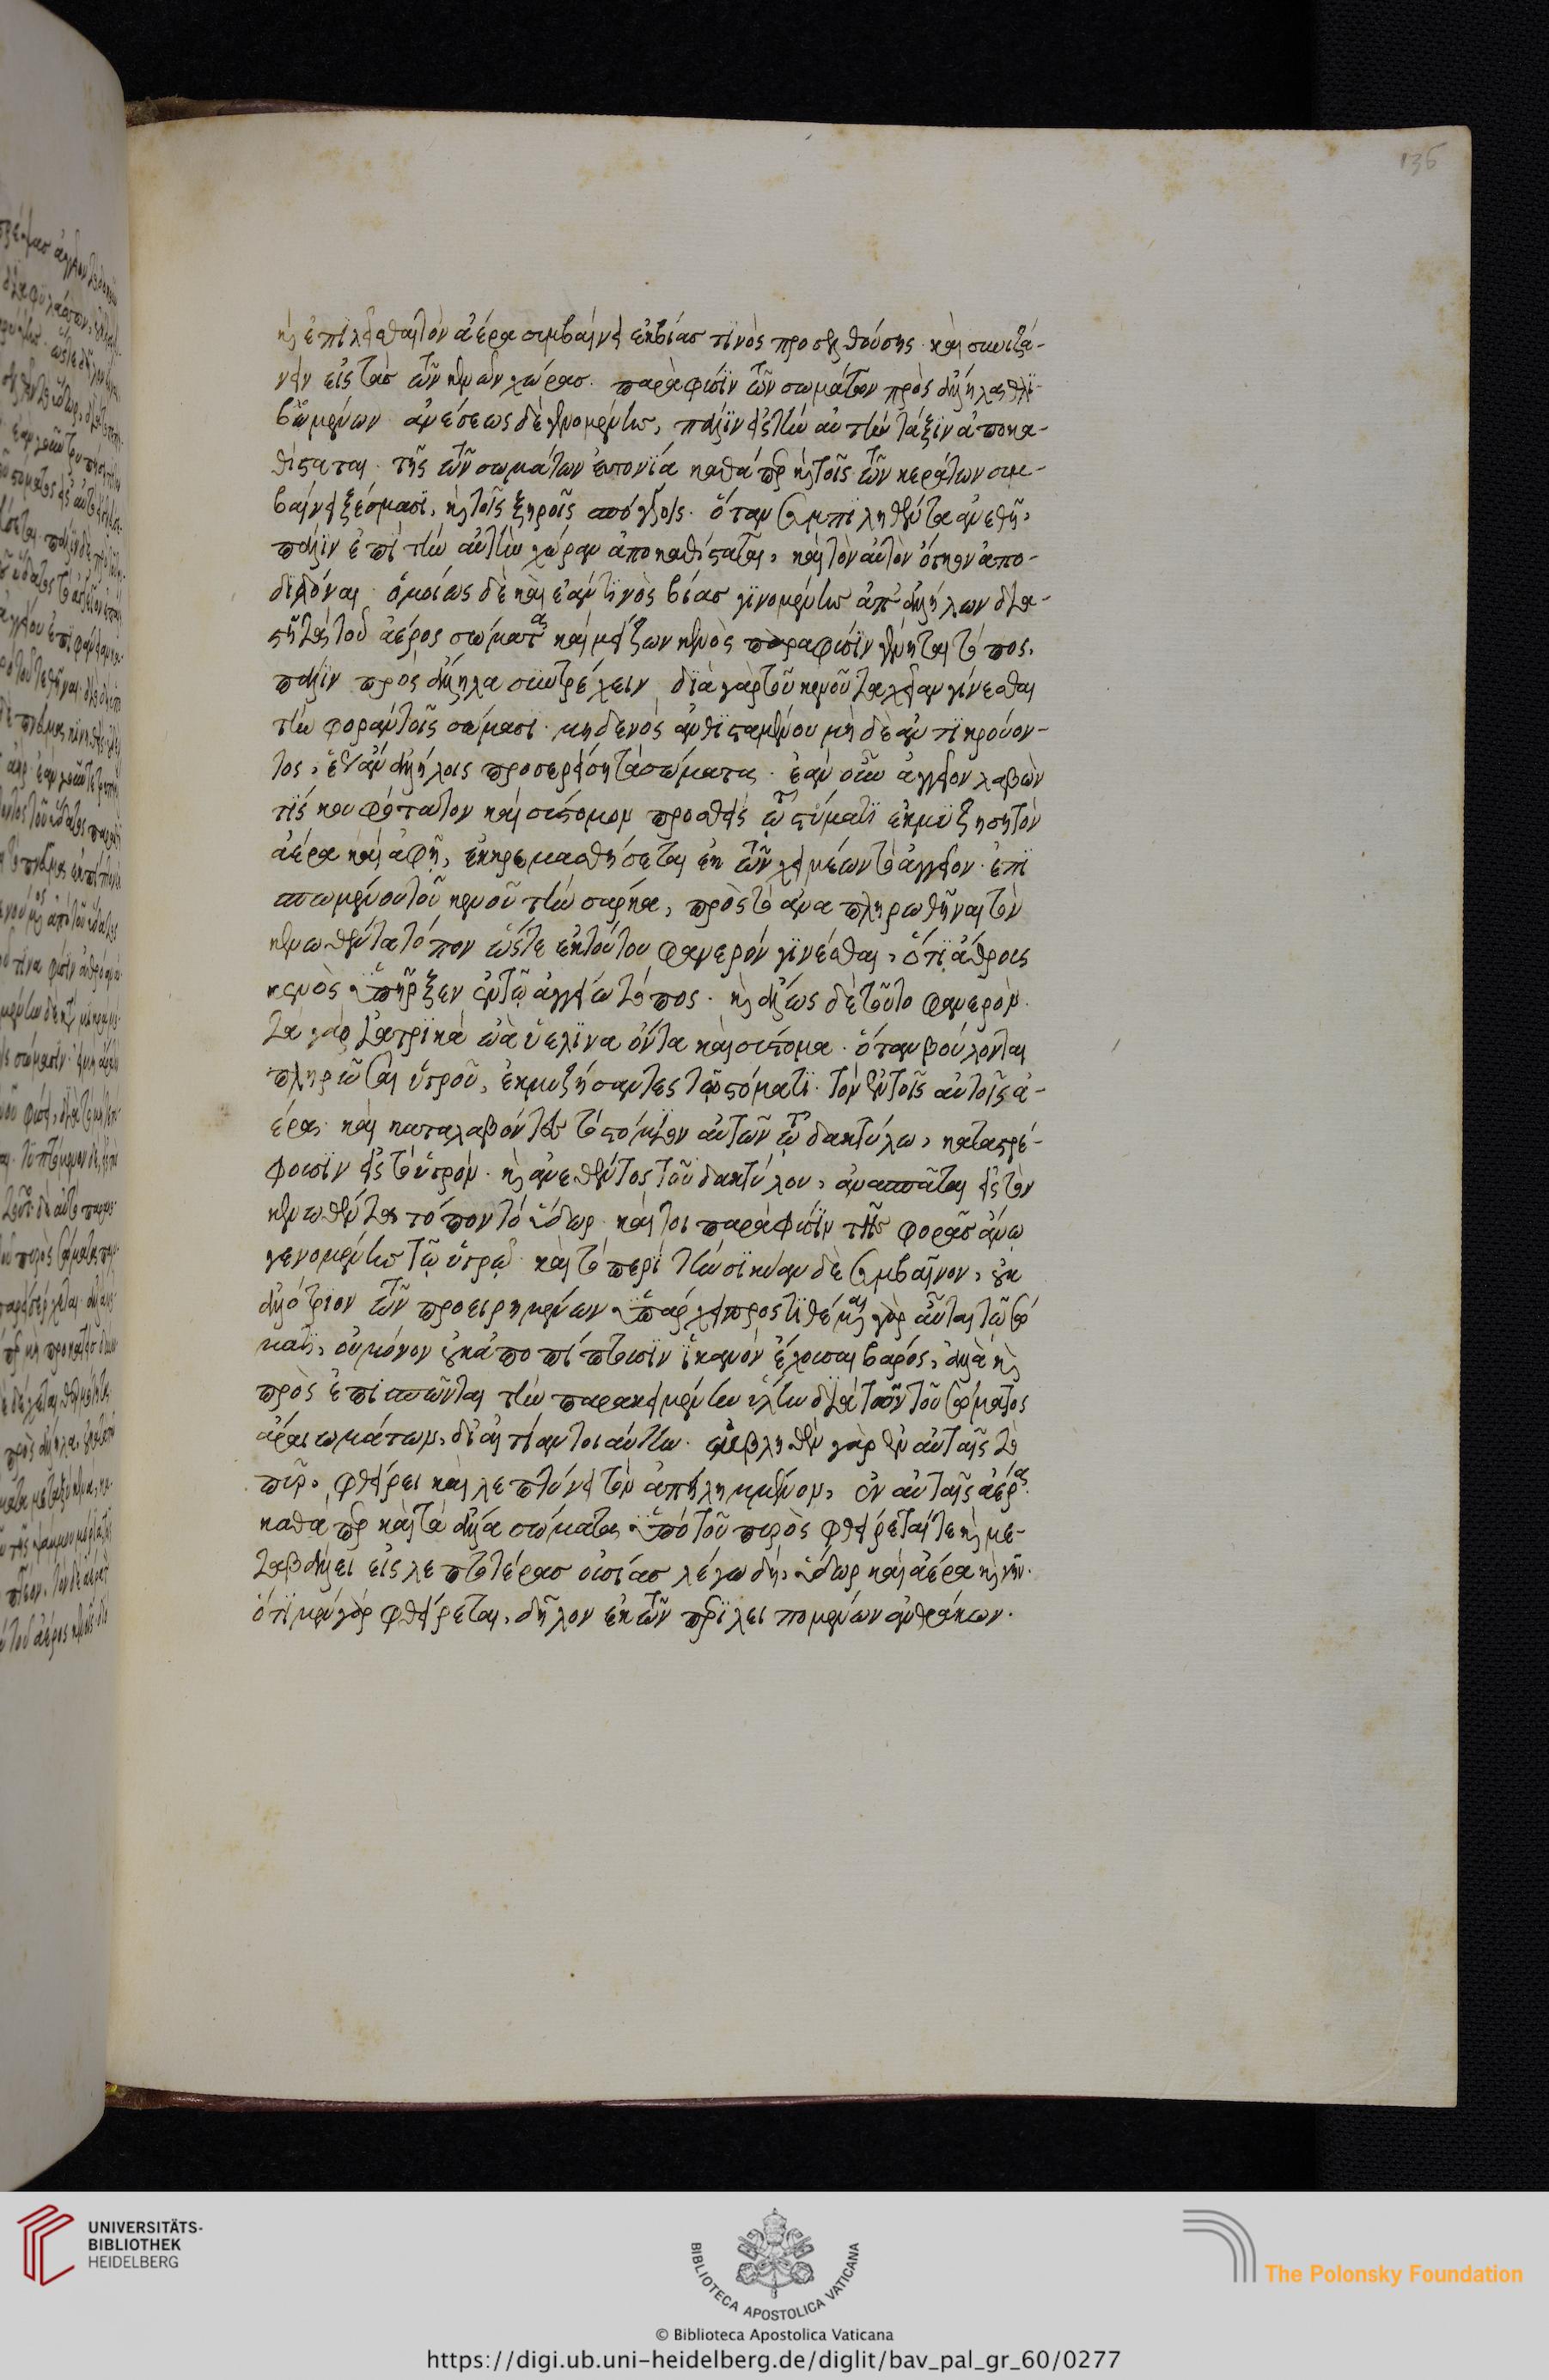 κ(αὶ) ἐπιλεῖσθαι τὸν ἀέρα συμβαίνει ἐκ βίας τινὸς προσελθούσης· καὶ συνιζά-
νειν εἰς τὰς τῶν κενῶν χώρας· παρὰ φύσιν τῶν σωμάτων πρὸς ἄλληλα θλι-
βομένων· ἀνέσεως δὲ γενομένης, πάλιν εἰς τὴν αὐτὴν τάξιν ἀποκα-
θίσταται· τῆς τῶν σωμάτων εὐτονία καθάπερ καὶ τοῖς τῶν κεράτων συμ-
βαίνει ξέσμασι, καὶ τοῖς ξηροῖς σπόγγοις· ὅταν συμπιληθέντα ἀνεθῆ,
πάλιν ἐπὶ τὴν αὐτὴν χώραν ἀποκαθίσταται, καὶ τὸν αὐτὸν ὄγκον ἀπο-
διδόναι· ὁμοίως δὲ καὶ ἐάν τινος βίας γινομένης ἀπ' ἀλλήλων δια-
στῆ τὰ τοῦ ἀέρος σώματα καὶ μείζων κενὸς παρὰ φύσιν γένηται τόπος,
πάλιν πρὸς ἄλληλα συντρέχειν· διὰ γὰρ τοῦ κενοῦ ταχεῖαν γίνεσθαι
τὴν φορὰν τοῖς σώμασι· μηδενὸς ἀνθισταμένου μὴ δὲ ἀντικρούον-
τος, ἕως ἂν ἀλλήλοις προσερείση τὰ σώματα· ἐὰν οὖν ἀγγεῖον λαβὼν
τίς κουφότατον καὶ σύστομον προσθεὶς τῷ στόματι ἐκμυζήση τὸν
ἀέρα καὶ ἀφῆ, ἐκκρεμασθήσεται ἐκ τῶν χειλέων τὸ ἀγγεῖον· ἐπι
σπωμένου τοῦ κενοῦ τὴν σάρκα, πρὸς τὸ ἀναπληρωθῆναι τὸν
κενωθέντα τόπον ὥστε ἐκ τούτου φανερὸν γίνεσθαι, ὅτι ἄθρους
κενὸς ὑπῆρξεν ἐν τῷ ἀγγείω τόπος· κ(αὶ) ἄλλως δὲ τοῦτο φανερόν·
τὰ γὰρ ἰατρικὰ ὠὰ ὑέλινα ὄντα καὶ σύστομα· ὅταν βούλωνται
πληρῶσαι ὑγροῦ, ἐκμυζήσαντες τῷ στόματι· τὸν ἐν τοῖς αὐτοῖς ἀ-
έρα· καὶ καταλαβόντες τὸ στόμιον αὐτῶν τῷ δακτύλω, καταστρέ-
φουσιν εἰς τὸ ὑγρόν· κ(αὶ) ἀνεθέντος τοῦ δακτύλου, ἀνασπᾶται εἰς τὸν
κενωθέντα τόπον τὸ ὕδωρ· καίτοι παρὰ φύσιν τῆς φορᾶς ἄνω
γενομένης τῷ ὑγρῷ· καὶ τὸ περὶ τὴν σικύαν δὲ συμβαῖνον, οὐκ
ἀλλότριον τῶν προειρημένων ὑπάρχει προστιθέμεναι γὰρ αὗται τῷ σώ
ματι, οὐ μόνον οὐκ ἀποπίπτουσιν ἱκανὸν ἔχουσαι βάρος, ἀλλὰ κ(αὶ)
πρὸς ἐπισπῶνται τὴν παρακειμένην ὕλην διὰ τῶν τοῦ σώματος
ἀραιωμάτων, δι' αἰτίαν τοιαύτην· ἐμβληθὲν γὰρ ἐν αὐταῖς τὸ
πῦρ, φθείρει καὶ λεπτύνει τὸν ἀπειλημμένον, ἐν αὐταῖς ἀέρα·
καθάπερ καὶ τὰ ἄλλα σώματα ὑπὸ τοῦ πυρὸς φθείρεταί τε κ(αὶ) με-
ταβάλλει εἰς λεπτοτέρας οὐσίας λέγω δὴ, ὕδωρ καὶ ἀέρα κ(αὶ) γῆν·
ὅτι μὲν γὰρ φθείρεται, δῆλον ἐκ τῶν περιλειπομένων ἀνθράκων·
UNIVERSITÄTS-
BIBLIOTHEK
HEIDELBERG
BIBLIOTECA APOSTOLICA VATICANA
The Polonsky Foundation
© Biblioteca Apostolica Vaticana
https://digi.ub.uni-heidelberg.de/diglit/bav_pal_gr_60/0277